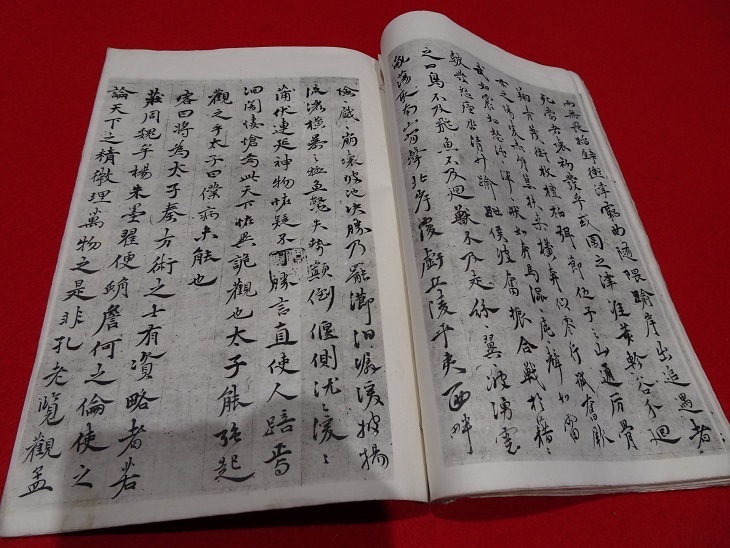 而無畏蹈壁衝津窮曲隨隈踰岸出追遇者
死當者壞初發乎或圍之津涯荄軫谷分迴
翔青篾銜枚檀桓弭節伍子之山通厲骨
母之場凌赤岸篲扶桑橫奔似雷行誠奮厥
武如震如怒沌〻渾〻狀如奔馬混〻庉〻聲如雷
鼓發怒庢沓清升踰跇侯波奮振合戰於藉〻
之口鳥不及飛魚不及迴獸不及走紛〻翼〻波湧雲
亂蕩取南山背擊北岸覆虧丘陵平夷西畔
險〻戲〻崩壞陂池決勝乃罷瀄汩潺湲披揚
流灑橫暴之極魚鱉失勢顛倒偃側沈〻湲〻
蒲伏連延神物怪疑不可勝言直使人踣焉
洄闇悽愴焉此天下怪異詭觀也太子能強起
觀之乎太子曰僕病未能也
客曰將為太子奏方術之士有資略者若
莊周魏牟楊朱墨翟便蜎詹何之倫使之
論天下之精微理萬物之是非孔老覽觀孟